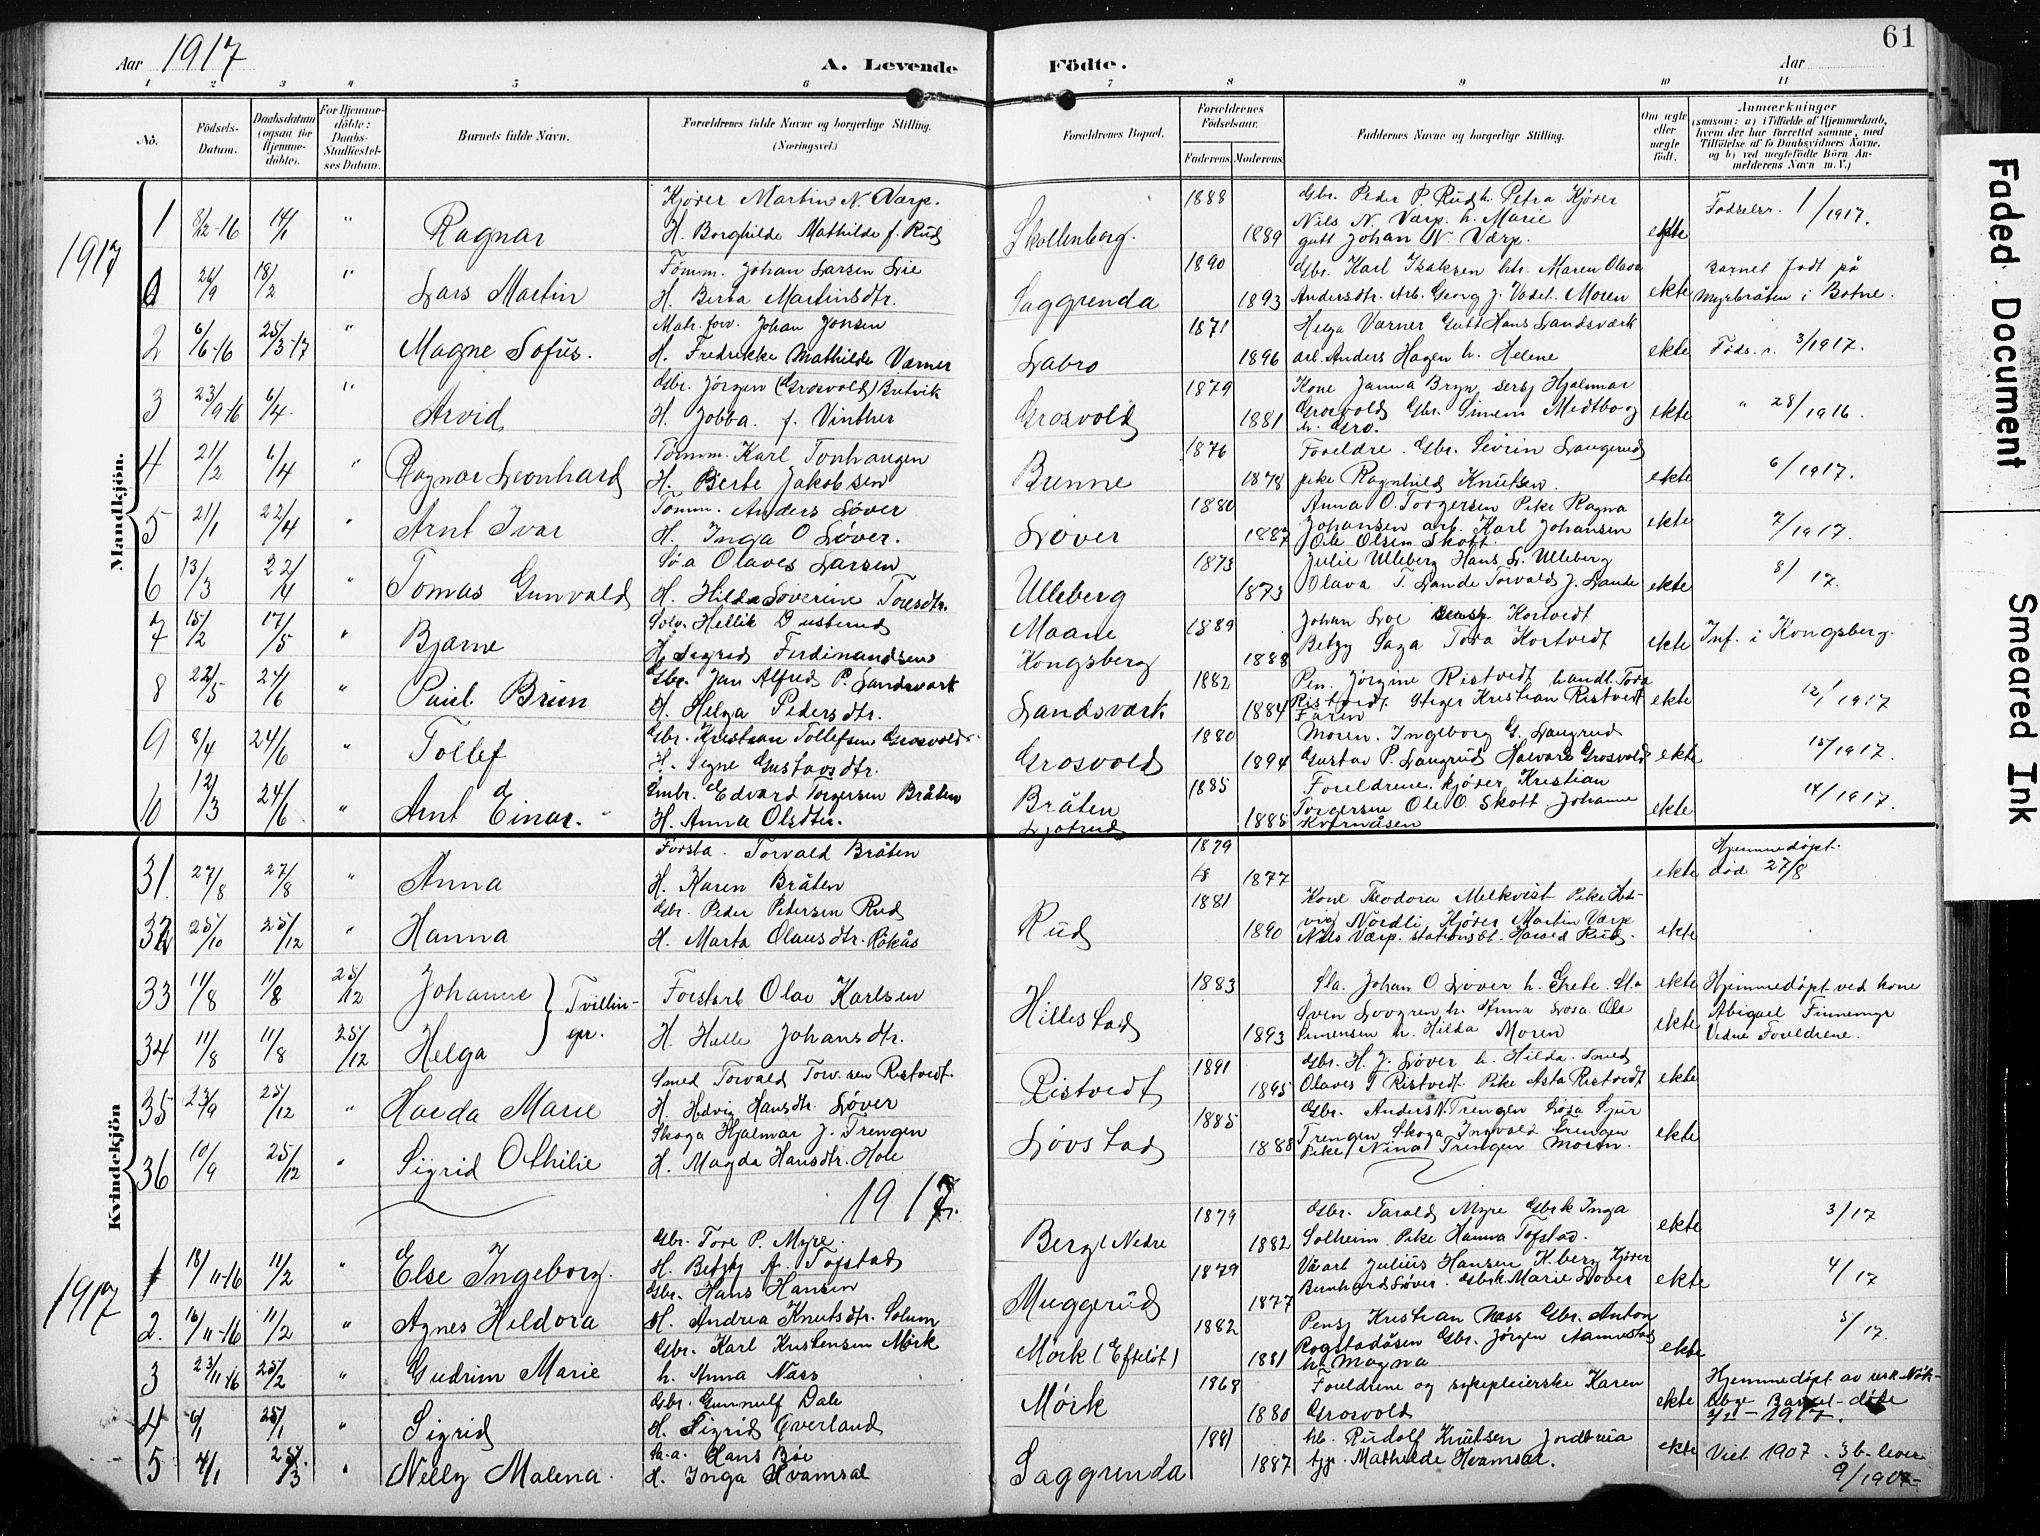 61
Aar 1917
A. Levende
Födte.
Aar
1 2 3 4 5 6 7 8 9 10 11
No.
Födsels-Datum.
Daabsdatum (ogsaa for Hjemme-döbte).
For Hjemme-döbte: Daabs-Stadfæstelses Datum.
Barnets fulde Navn.
Forældrenes fulde Navne og borgerlige Stilling. (Næringsvei.)
Forældrenes Bopæl.
Forældrenes Födselsaar.
Faderens. Moderens.
Faddernes Navne og borgerlige Stilling.
Om ægte eller uægte födt.
Anmærkninger
(saasom: a) i Tilfælde af Hjemmedaab, hvem der har forrettet samme, med Tilföielse af to Daabsvidners Navne. og b) ved uægtefödte Börn Anmelderens Navn m. V.)
Mandkjön.
1917
1 8/12-16 14/1 " Ragnar
Kjörer Martin N. Værp.
H. Borghilde Mathilde f. Rud
Skollenborg. 1888 1889
Gbr. Peder P. Rud h. Petra Kjörer
Nils N. Værp. h. Marie
gutt Johan N. Værp.
ekte
Födselsr. 1/1917.
26/9 18/2 " Lars Martin
Tömm. Johan Larsen Lie
H. Berta Martinsdtr.
Saggrenda 1890 1893
Gbr. Karl Isaksen h. Maren Olava
Andersdtr. Arb. Georg J. Vadet. Moren
ekte
Barnet födt på
Myrbråten i Botne.
2 6/6-16 25/3-17 " Magne Sofus.
Matr. forv. Johan Jonsen
H. Fredrikke Mathilde Værner
Labro 1871 1896
Helga Værner Gutt Hans Landsværk
arb. Anders Hagen h. Helene
ekte
Föds. r. 3/1917.
3 23/9-16 6/4. " Arvid
Gbr. Jörgen (Grosvold) Butvik
H. Jobba. f. Vinther
Grosvold 1879 1881
Kone Janna Bryn, sersj Hjalmar
Grosvold Gbr. Simen Medtbö og
h. Gro.
ekte
" 28/1916.
4 21/2 6/4 " Ragnar Leonhard
Tömm. Karl Tonhaugen
H. Berte Jakobsen
Brenne 1876 1878
Foreldre. Gbr. Sevrin Langerud
pike Ragnhild Knutsen.
ekte
6/1917.
5 21/1 22/4 " Arnt Ivar
Tomm. Anders Löver
H. Inga O Löver.
Löver 1880 1887
Anna O. Torgersen Pike Ragna
Johansen arb. Karl Johansen
Ole Olsen Skott.
ekte
7/1917.
6 13/3 22/4 " Tomas Gunvald
Olaves Larsen
H. Hilda Severine Toresdtr.
Ulleberg 1873 1873
Julie Ulleberg Hans L. Ulleberg
Olava T. Lande Torvald J. Lande
ekte
8/17.
7 15/2 17/5 " Bjarne
Hellik Dusterud
H. Sigrid Ferdinandsen
Moane
Kongsberg 1889 1888
Johan Loe Kortvedt
Betzy Saga Tora Kortvedt
ekte
Inf. i Kongsberg.
8 22/5 24/6 " Paul Brun
Gbr. Jan Alfred P. Landsværk
H. Helga Pedersdtr.
Landsværk 1882 1884
Pen. Jörgine Ristvedt handl. Tora
Ristvedt. Stiger Kristian Ristvedt
Faren
ekte
12/1917
9 8/4 24/6 " Tollef
Gbr. Kristian Tollefsen Grosvold
H. Signe Gustavsdtr.
Grosvold 1880 1894
Moren. Ingeborg G. Langrud
Gustav P. Langrud Halvard Grosvold
ekte
15/1917.
12/3 24/6 " Arnt Einar.
Gmbr. Edvard Torgersen Bråten
H. Anna Olsdtr.
Bråten
Ljotrud 1885 1885
Foreldrene. kjörer Kristian
Torgersen Ole O. Skott Johanne
Kvernåsen
ekte
14/1917.
Kvindekjön
31. 27/8 27/8 " Anna
Forsta. Torvald Bråten
H. Karen Bråten
1879 1877
ekte
Hjemmedöpt.
död 27/8
32 25/10 25/12 " Hanna
Gbr. Peder Petersen Rud
H. Marta Olausdtr. Rökås
Rud 1881 1890
Kone Theodora Melkvist Pike Lud-
vig Nordli Kjörer Martin Værp
Nils Værp. stationsbt. Harald Rud.
ekte
33 11/8 11/8 25/12 Johanne
34 11/8 11/8 25/12 Helga
Tvillin-
ger.
Forstarb Olav Karlsen
H. Helle Johansdtr.
Hillestad 1883 1893
Sla. Johan O Löver h. Grete.
Sven Lovgren h. Anna Losa. Ole
Simensen h. Hilda Moren
ekte
ekte
Hjemmedöpt ved kone
Abigael Finnemyr
Vidne Foreldrene.
35 23/9 25/12 " Harda Marie
Smed Torvald Torv.sen Ristvedt.
H. Hedvig Hansdtr. Löver
Ristvedt 1891 1895
Gbr. H. J. Löver h. Hilda. Smed
Olaves T Ristvedt. Pike Asta Ristvedt
ekte
36 10/9 25/12 " Sigrid Othilie
Skoga Hjalmar J. Trengen
H. Magda Hansdtr. Hole
Lövstad 1885 1888
Gbr. Anders N. Trengen Lösa Sjur
Trengen Skoga Ingvald Trengen
Pike Nina Trengen Moren.
ekte
1917
1917
1 18/11-16 11/2 " Else Ingeborg.
Gbr. Tore P. Myre.
H. Betzy A. Tofstad
Berg (Nedre 1879 1882
Gbr. Tarald Myre Gbrk Inga
Solheim Pike Hanna Tofstad.
ekte
3/17
2. 16/11-16 11/2 " Agnes Heldora
Gbr. Hans Hansen
H. Andrea Knutsdtr. Solum
Muggerud 1879 1877
Væarb Julius Hansen K.berg Kjörer
Bernhard Löver. Gbrk. Marie Löver
ekte
4/17
3 23/11-16 25/2 " Gudrun Marie
Gbr. Karl Kristensen Mörk
h. Anna Næss
Mörk (Efteløt) 1882 1881
Pensj Kristian Næss Gbr. Anton
Rogstadåsen Gbr. Jörgen Aamestad
h. Magna
ekte
5/17.
4 6/1 25/1 " Sigrid
Gbr. Gunnulf Dale
H. Sigrid Overland
Mörk 1868 1880
Foreldrene og sykepleierske Karen
Grosvold
ekte
Hjemmedöpt av
Barnet döde
1917.
5 4/1 25/3 " Nelly Malena.
Hans Böe
H. Inga Hvamsal
Saggrenda 1881 1887
hb. Rudolf Knutsen
Mathilde Hvamsal.
ekte
Viet 1907. 3 b. lever
9/1917
Faded Document
Smeared Ink